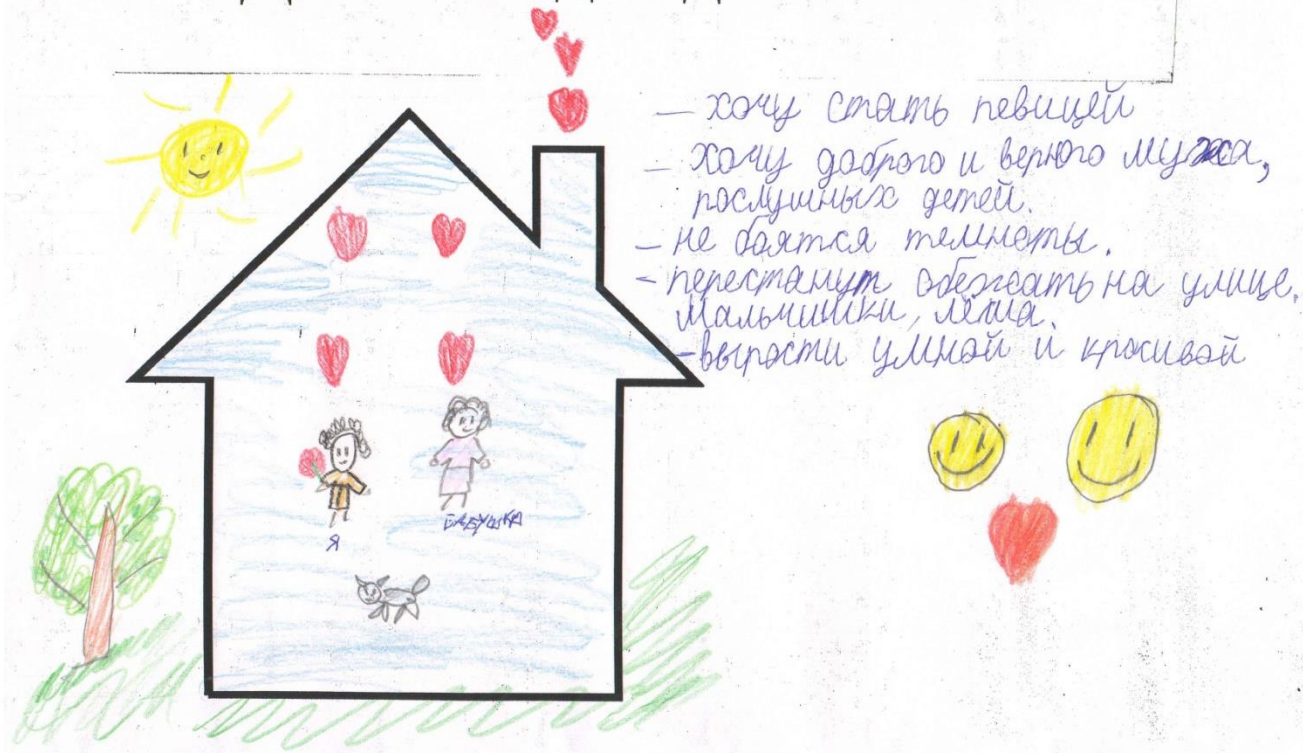 — хочу стать певицей
— хочу доброго и верного мужа,
послушных детей.
— не боятся темноты.
- перестанут обежать на улице.
мальчишки, лёша.
-вырасти умной и красивой
Я
БАБУШКА